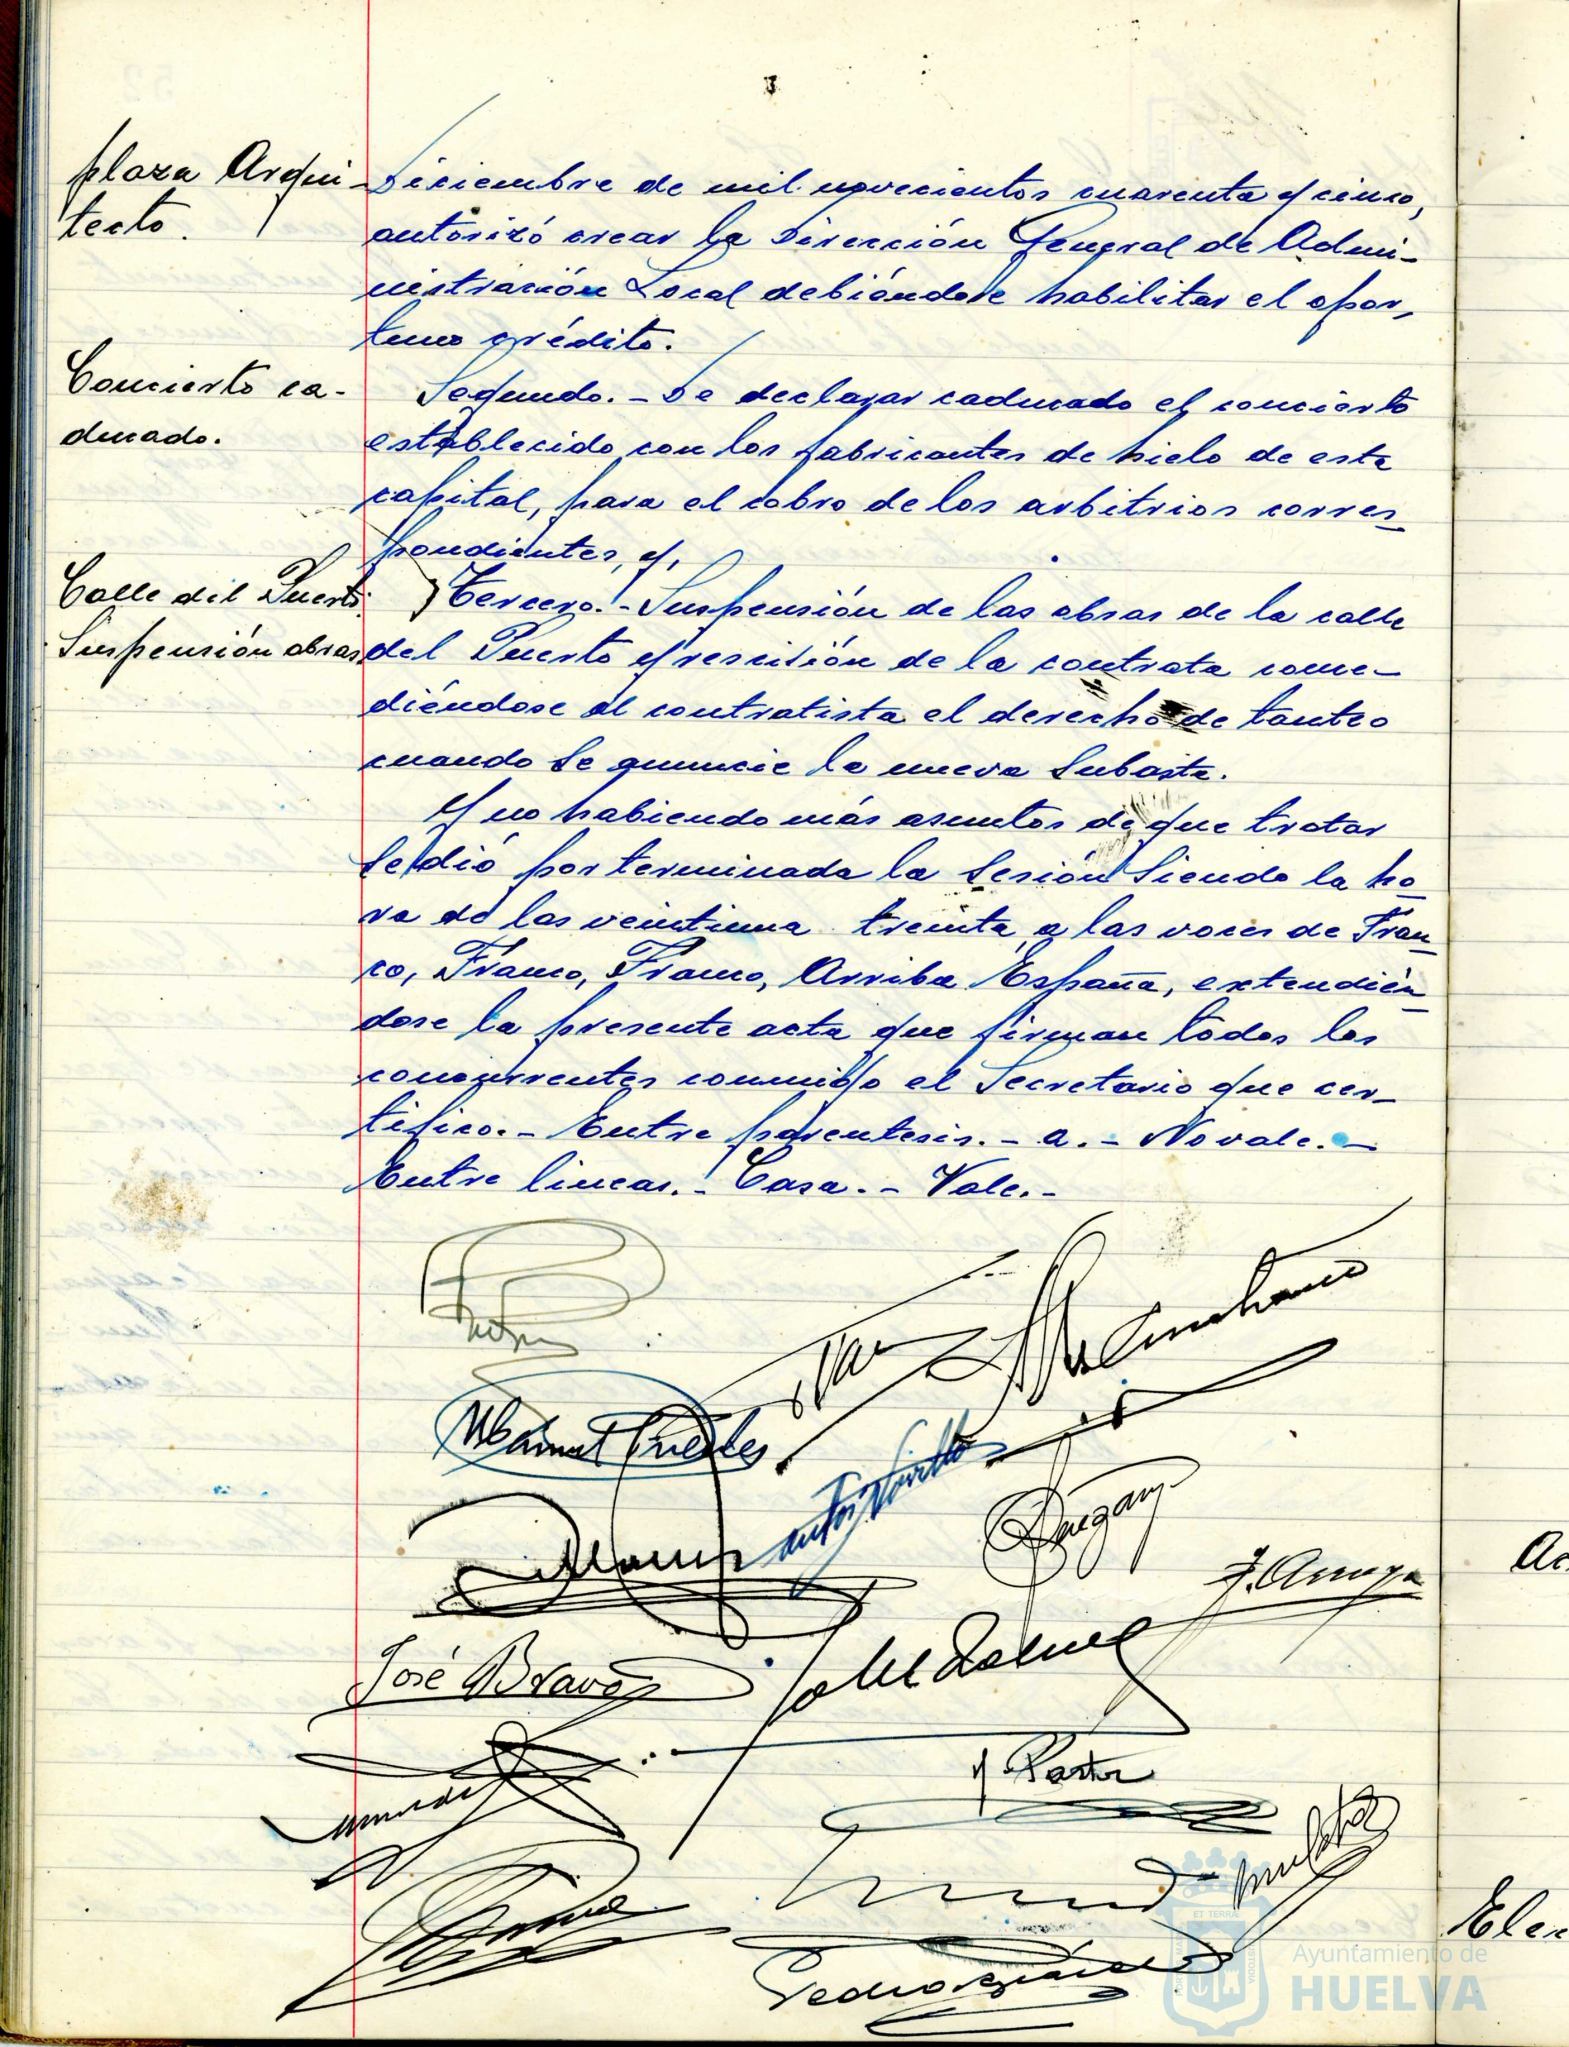 plaza Arqui-
tecto.
Diciembre de mil novecientos cuarenta y cinco,
autorizó crear la Dirección General de Admi-
nistración Local debiéndose habilitar el opor-
tuno crédito.
Concierto ca-
ducado.
Segundo.- De declarar caducado el concierto
establecido con los fabricantes de hielo de esta
capital, para el cobro de los arbitrios corres-
pondientes, y,
Calle del Puerto.
Suspensión obras
Tercero.- Suspensión de las obras de la calle
del Puerto y rescisión de la contrata conce-
diéndose al contratista el derecho de tanteo
cuando se anuncie la nueva Subasta.
Y no habiendo más asuntos de que tratar
se dió por terminada la Sesión Siendo la ho-
ra de las veintiuna treinta a las voces de Fran-
co, Franco, Franco, Arriba España, extendién-
dose la presente acta que firman todos los
concurrentes conmigo el Secretario que cer-
tifico.- Entre paréntesis.- a.- No vale.-
Entre lineas.- Casa.- Vale.-
J. Arroyo
José Bravo
J. Pastor
Pedro
Ayuntamiento de
HUELVA